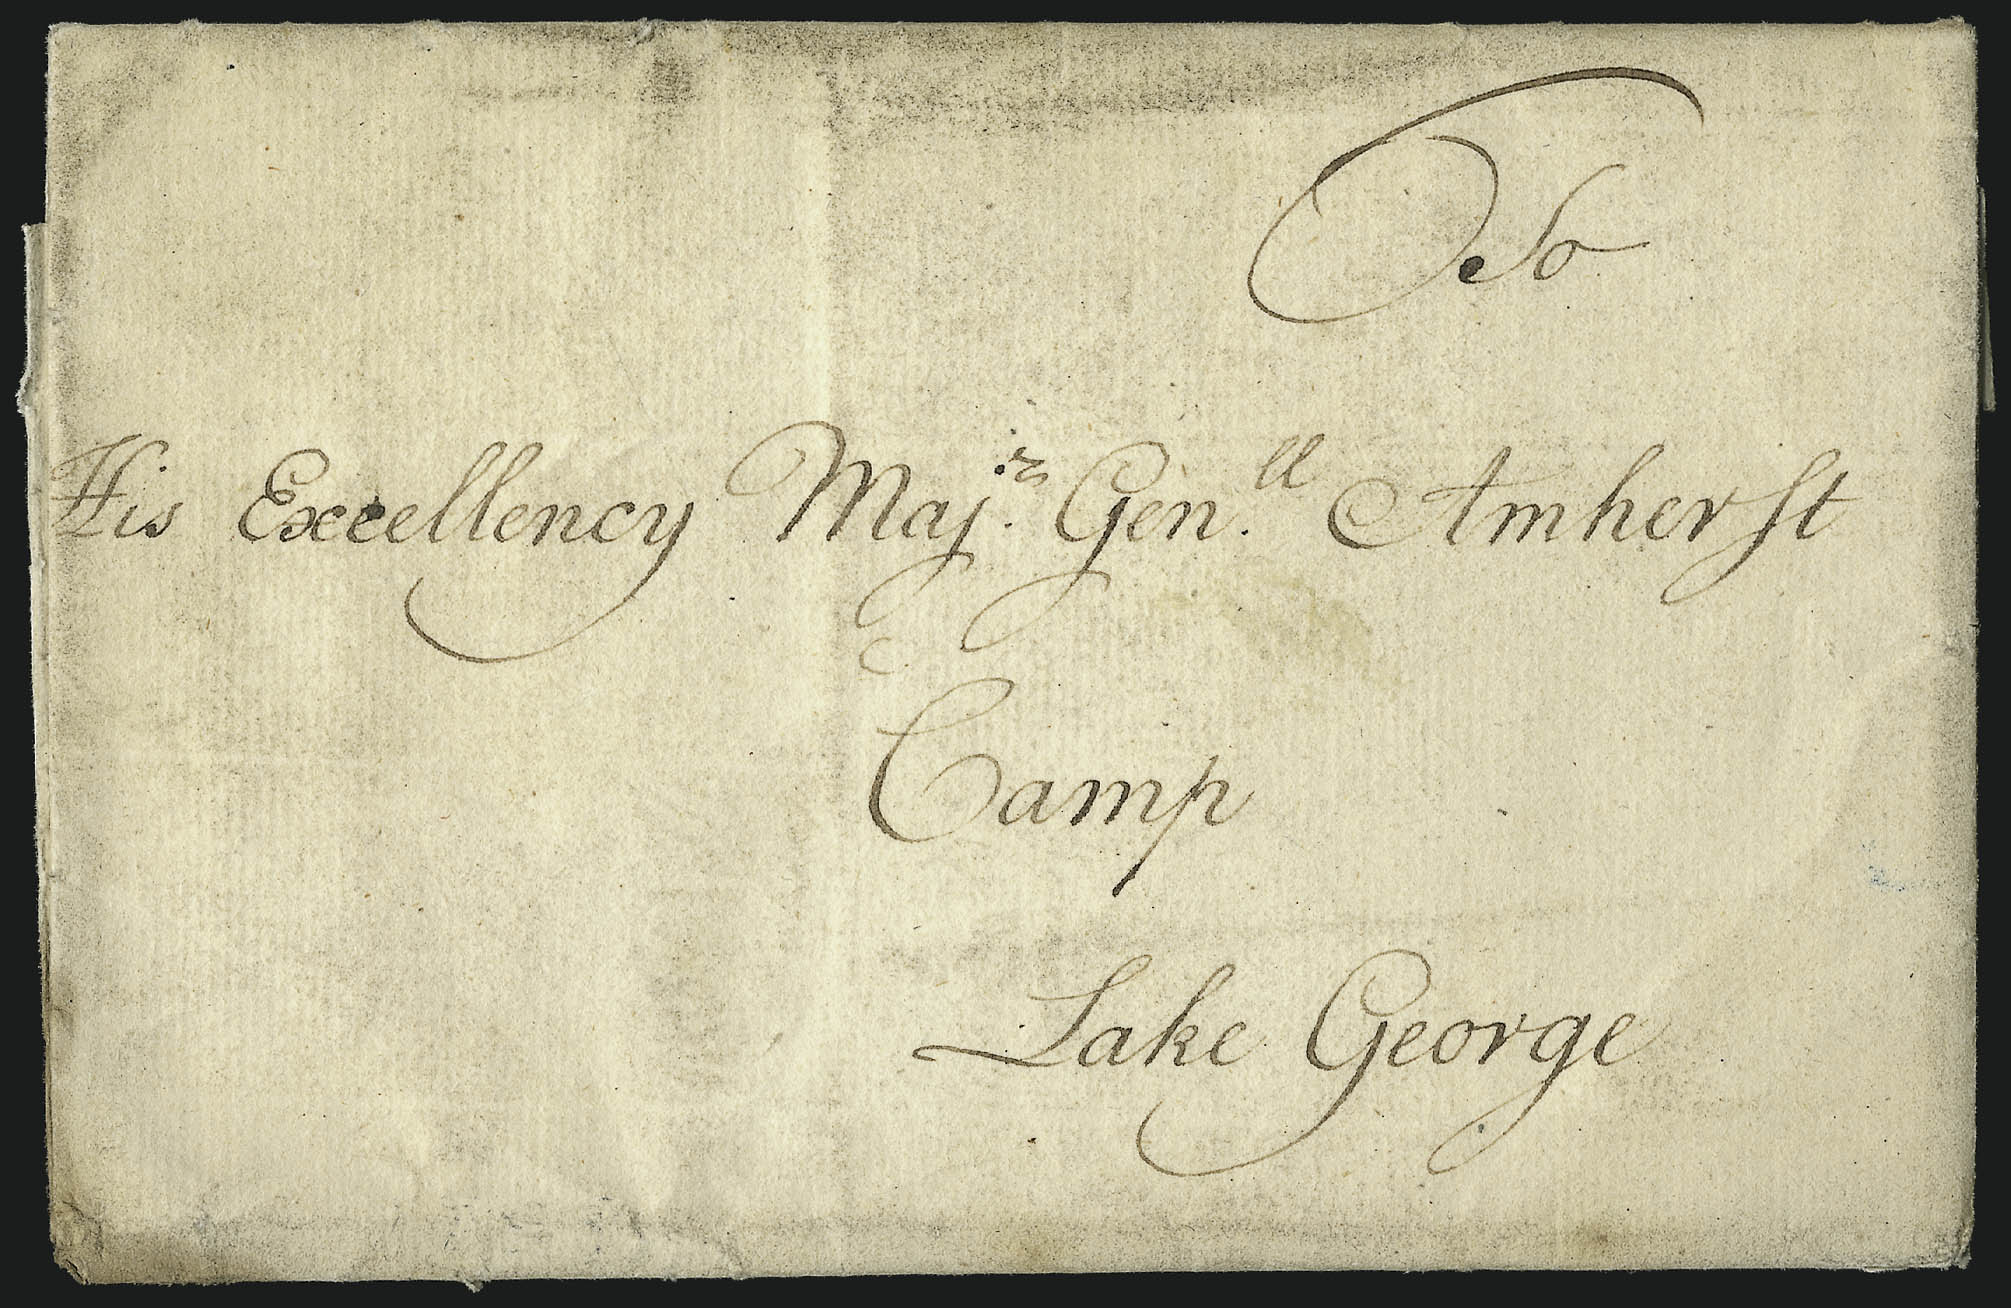 To
His Excellency Maj.r Gen.ll Amherſt
Camp
Lake George